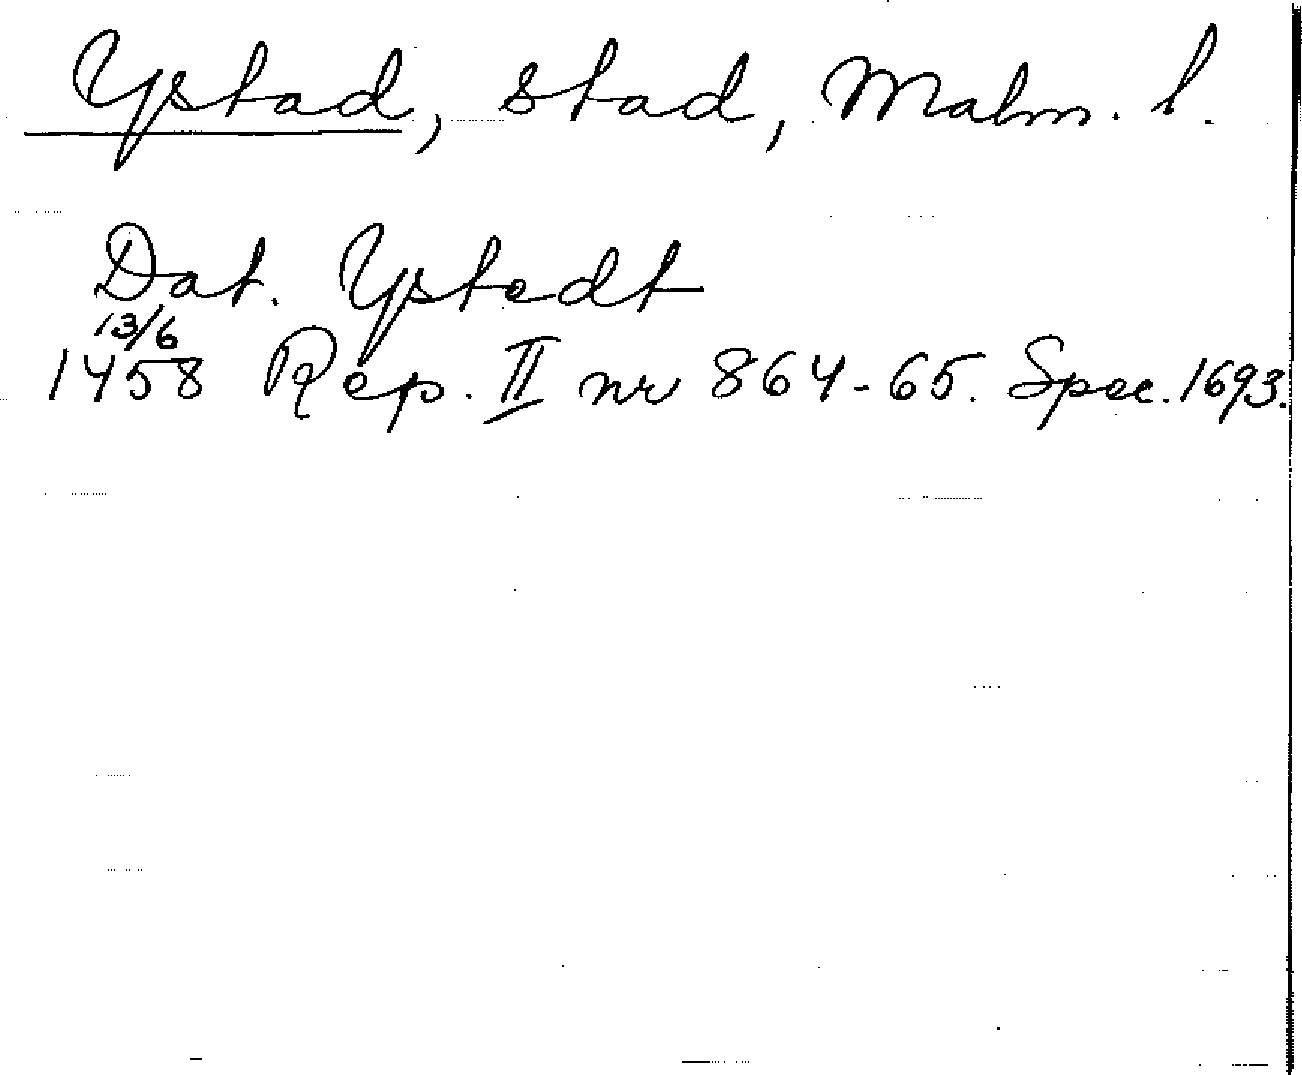 Ystad, stad, Malm. l.
Dat. Ystedt
13/6
1458 Rep. II nr 864-65. Spec. 1693.